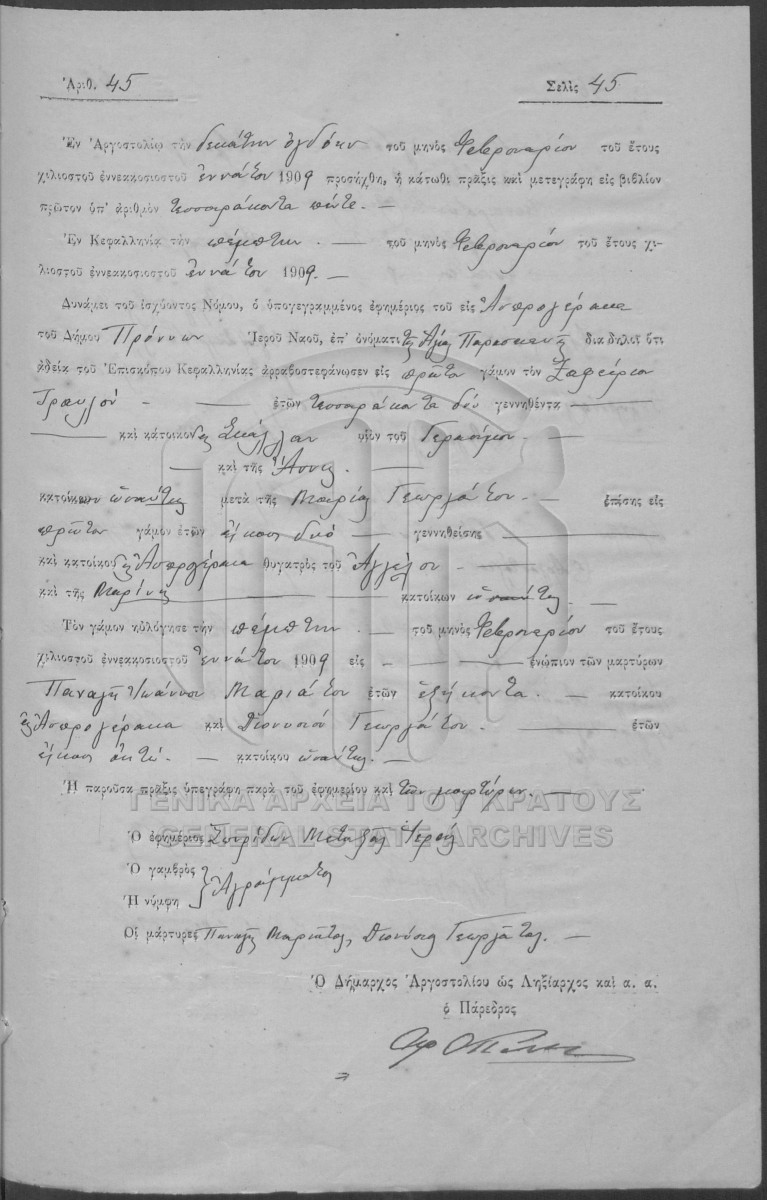 Ἀριθ. 45
Σελὶς 45
Ἐν Ἀργοστολίῳ τὴν δεκάτην ὀγδόην τοῦ μηνὸς Φεβρουαρίου τοῦ ἔτους
χιλιοστοῦ ἐννεακοσιοστοῦ ἐννάτου 1909 προσήχθη, ἡ κάτωθι πρᾶξις καὶ μετεγράφη εἰς βιβλίον
πρῶτον ὑπ' ἀριθμὸν τεσσαράκοντα πέντε. —
Ἐν Κεφαλληνίᾳ τὴν πέμπτην. — τοῦ μηνὸς Φεβρουαρίου τοῦ ἔτους χι-
λιοστοῦ ἐννεακοσιοστοῦ ἐννάτου 1909. —
Δυνάμει τοῦ ἰσχύοντος Νόμου, ὁ ὑπογεγραμμένος ἐφημέριος τοῦ εἰς Ἀσπρογέρακα
τοῦ Δήμου Πρόννων Ἱεροῦ Ναοῦ, ἐπ' ὀνόματι τῆς Ἁγίας Παρασκευῆς διαδηλοῖ ὅτι
ἀδείᾳ τοῦ Ἐπισκόπου Κεφαλληνίας ἀρραβοστεφάνωσεν εἰς πρῶτον γάμον τὸν Ζαφείριον
Τραυλὸν — ἐτῶν τεσσαράκοντα δύο γεννηθέντα —
— καὶ κάτοικον υἱὸν τοῦ Γερασίμου. —
— καὶ τῆς Ἄννης. —
κατοίκων ὡσαύτως μετὰ τῆς Μαρίας Γεωργάτου. — ἐπίσης εἰς
πρῶτον γάμον ἐτῶν εἴκοσι δύο — γεννηθείσης —
καὶ κατοίκου Ἀσπρογέρακα θυγατρὸς τοῦ Ἀγγέλου. —
καὶ τῆς Μαρίνης — κατοίκων ὡσαύτως. —
Τὸν γάμον ηὐλόγησε τὴν πέμπτην. — τοῦ μηνὸς Φεβρουαρίου τοῦ ἔτους
χιλιοστοῦ ἐννεακοσιοστοῦ ἐννάτου 1909 εἰς — ἐνώπιον τῶν μαρτύρων
Παναγῆ Ἰωάννου Μαριάτου ἐτῶν ἑξήκοντα. — κατοίκου
εἰς Ἀσπρογέρακα καὶ Διονυσίου Γεωργάτου. — ἐτῶν
εἴκοσι ὀκτώ. — κατοίκου ὡσαύτως. —
Ἡ παροῦσα πρᾶξις ὑπεγράφη παρὰ τοῦ ἐφημερίου καὶ τῶν μαρτύρων. —
ΓΕΝΙΚΑ ΑΡΧΕΙΑ ΤΟΥ ΚΡΑΤΟΥΣ
GENERAL STATE ARCHIVES
Ὁ ἐφημέριος Σπυρίδων Μεταξᾶς Ἱερεύς
Ὁ γαμβρὸς
Ἡ νύμφη } Ἀγράμματοι
Οἱ μάρτυρες Παναγῆς Μαριᾶτος, Διονύσιος Γεωργᾶτος. —
Ὁ Δήμαρχος Ἀργοστολίου ὡς Ληξίαρχος καὶ α. α.
ὁ Πάρεδρος